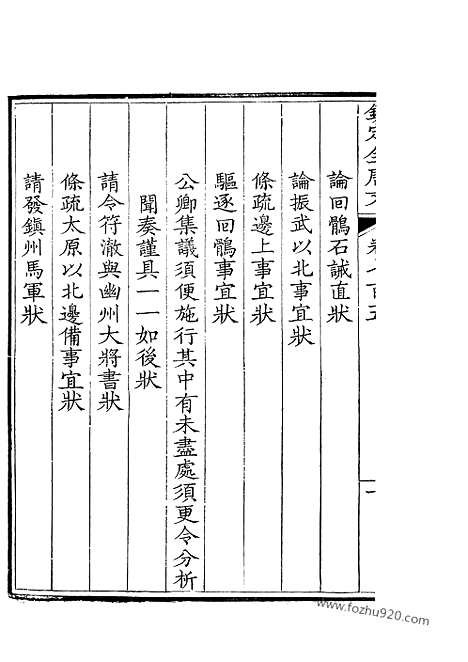 論回鶻石誠直狀
論振武以北事宜狀
條疏邊上事宜狀
驅逐回鶻事宜狀
公卿集議須便施行其中有未盡處須更令分析
聞奏謹具一一如後狀
請令符澈與幽州大將書狀
條疏太原以北邊備事宜狀
請發鎮州馬軍狀
www.fozhu920.com